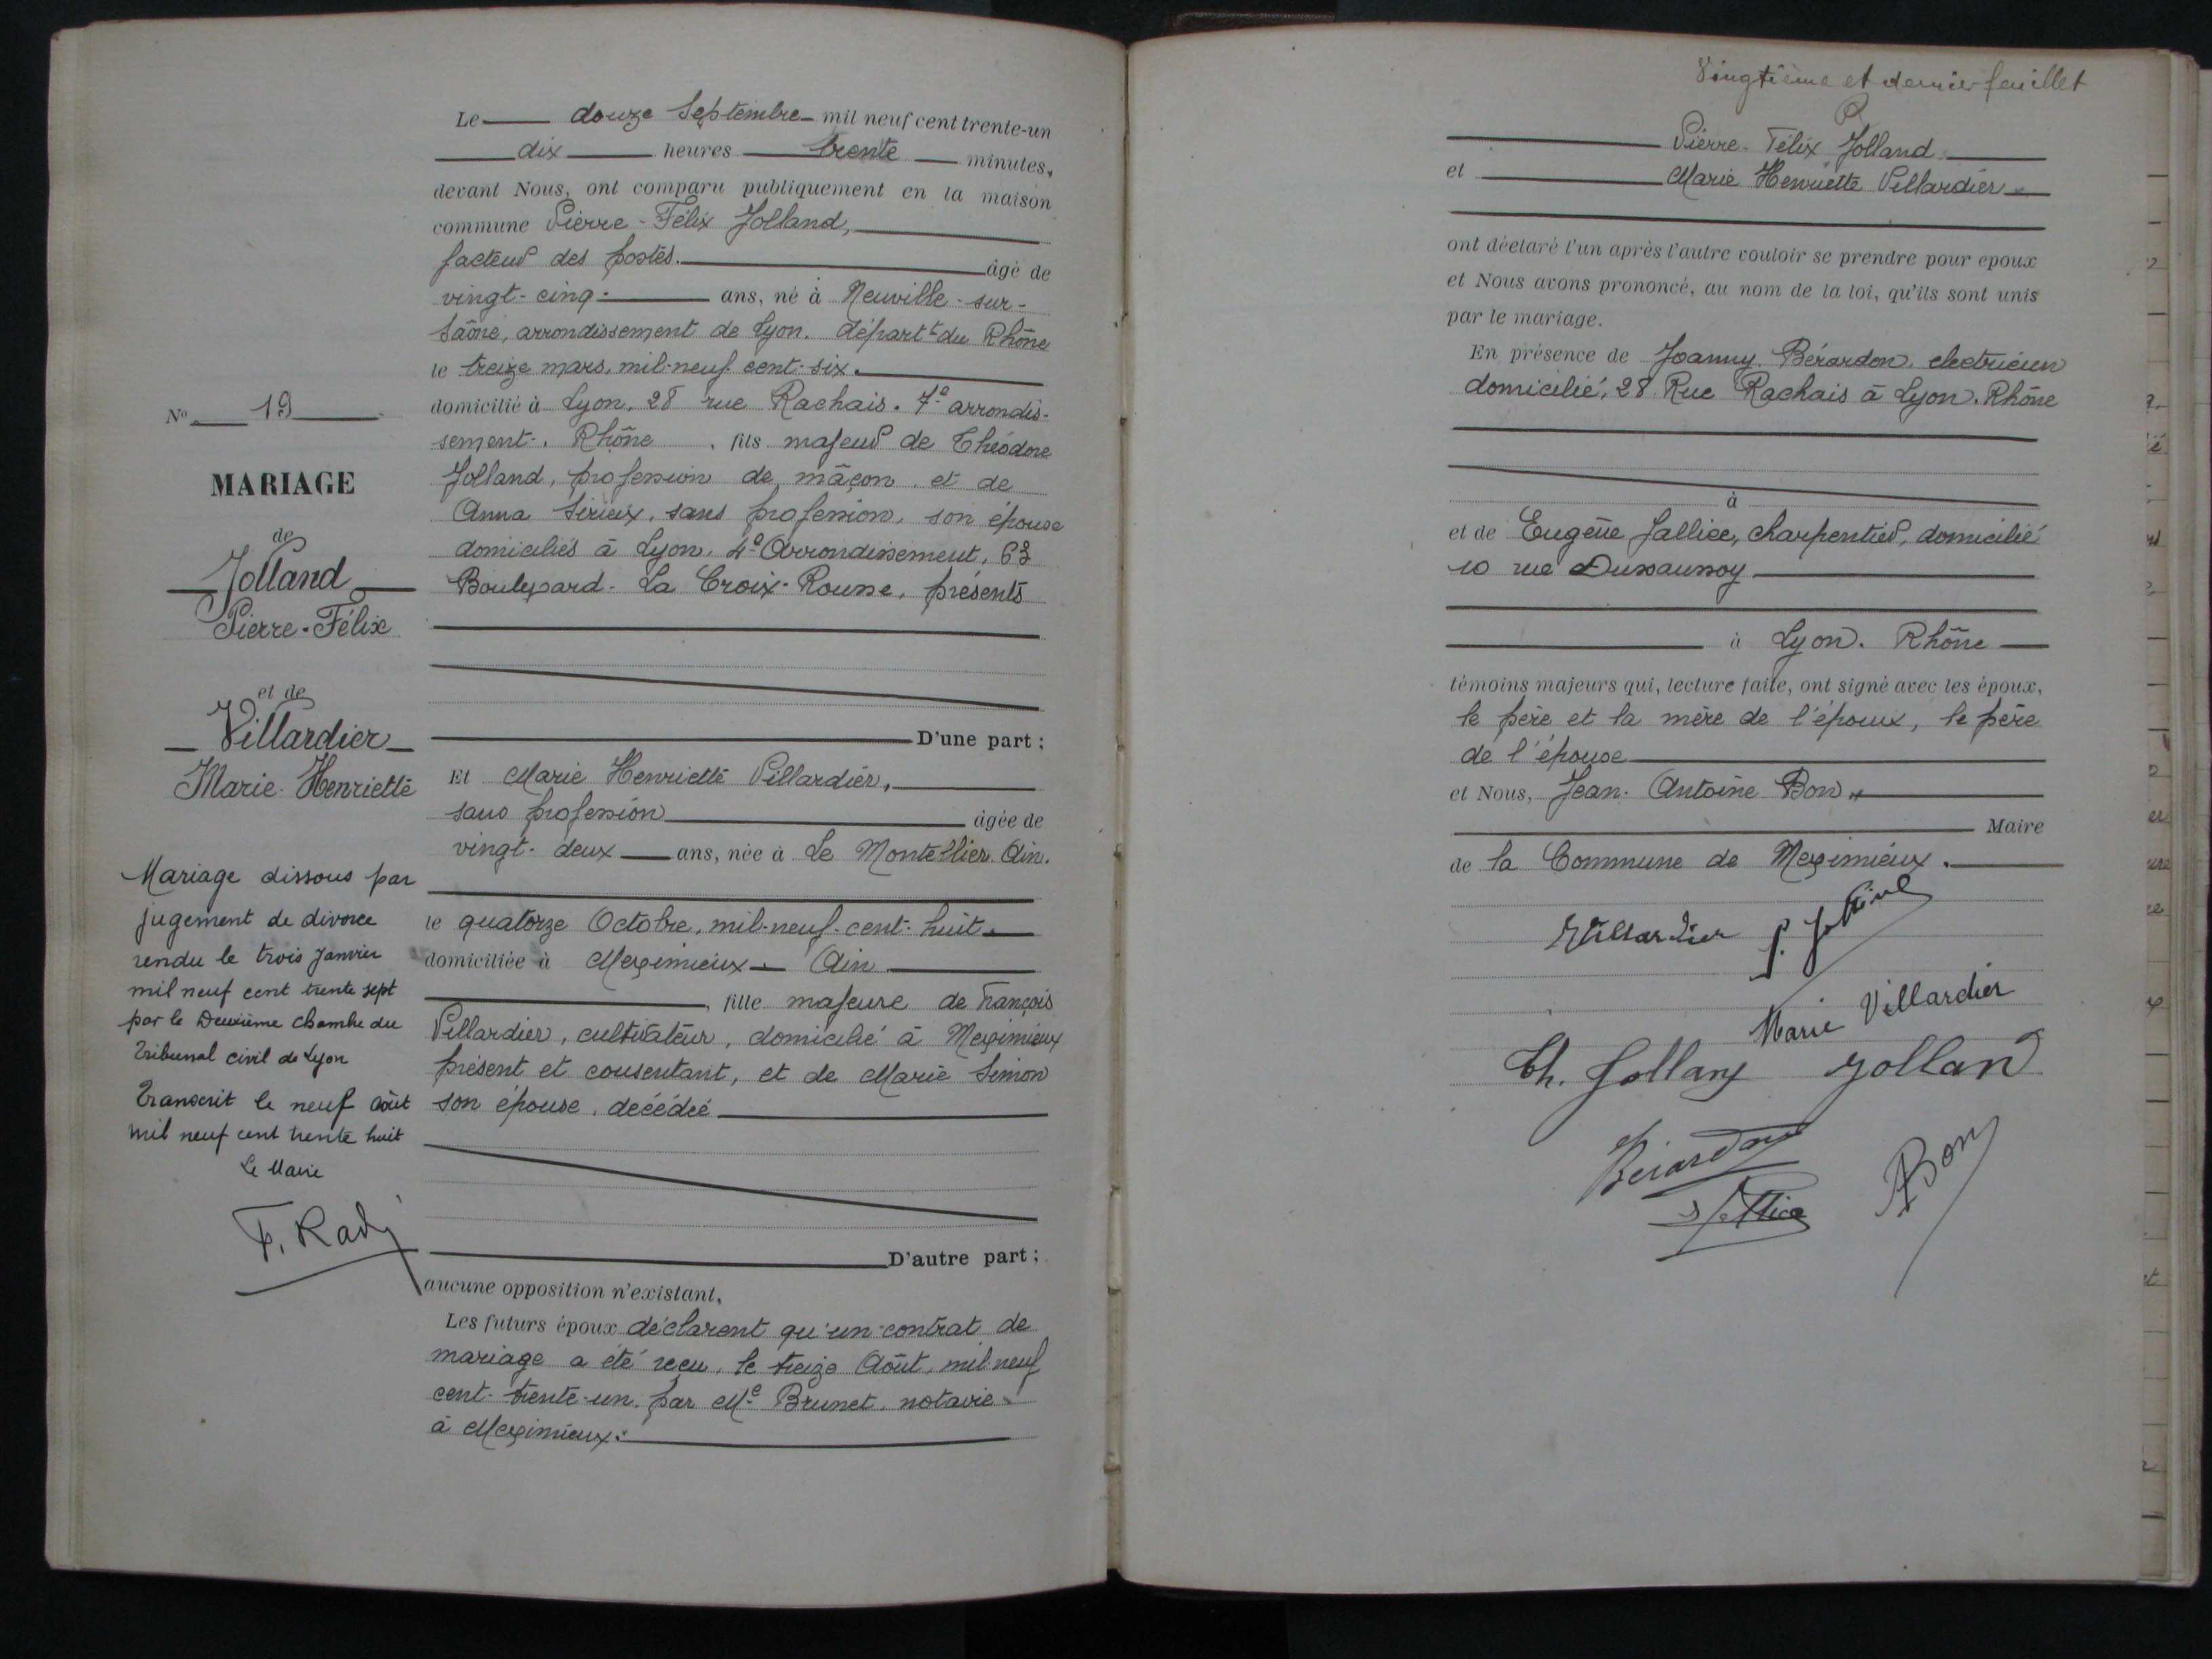 Le douze Septembre mil neuf cent trente-un
dix heures trente minutes,
devant Nous, ont comparu publiquement en la maison
commune Pierre-Félix Jolland,
facteur des postes. âgé de
vingt-cinq ans, né à Neuville-sur-
Saône, arrondissement de Lyon. départt du Rhône
le treize mars, mil-neuf cent-six.
domicilié à Lyon, 28 rue Rachais. 7e arrondis-
sement. Rhône, fils majeur de Théodore
Jolland, profession de mâçon et de
Anna Sirieix, sans profession, son épouse
domiciliés à Lyon, 4e Arrondissement, 63
Boulevard La Croix-Rousse, présents
D'une part;
Et Marie Henriette Villardier,
sans profession âgée de
vingt-deux ans, née à Le Montellier Ain.
le quatorze Octobre, mil-neuf-cent-huit
domiciliée à Meximieux Ain
, fille majeure de François
Villardier, cultivateur, domicilié à Meximieux
présent et consentant, et de Marie Simon
son épouse, décédée
D'autre part;
aucune opposition n'existant,
Les futurs époux déclarent qu'un contrat de
mariage a été reçu, le treize Août, mil neuf
cent-trente-un par Me Brunet, notaire
à Meximieux.
No 19
MARIAGE
de
Jolland
Pierre-Félix
et de
Villardier
Marie-Henriette
Mariage dissous par
jugement de divorce
rendu le trois Janvier
mil neuf cent trente sept
par le Deuxième Chambre du
Tribunal civil de Lyon
Transcrit le neuf août
mil neuf cent trente huit
Le Maire
Vingtième et dernier feuillet
Pierre-Félix Jolland
et Marie Henriette Villardier
ont déclaré l'un après l'autre vouloir se prendre pour époux
et Nous avons prononcé, au nom de la loi, qu'ils sont unis
par le mariage.
En présence de Joanny Bérardon, electricien
domicilié, 28 Rue Rachais à Lyon. Rhône
à
et de Eugène Jallice, charpentier, domicilié
10 rue Dussaussoy
à Lyon. Rhône
témoins majeurs qui, lecture faite, ont signé avec les époux,
le père et la mère de l'époux, le père
de l'épouse
et Nous, Jean-Antoine Bon
Maire
de la Commune de Meximieux.
Villardier
Marie Villardier
Th. Jolland Jollan
Berardon
Jallice ABon